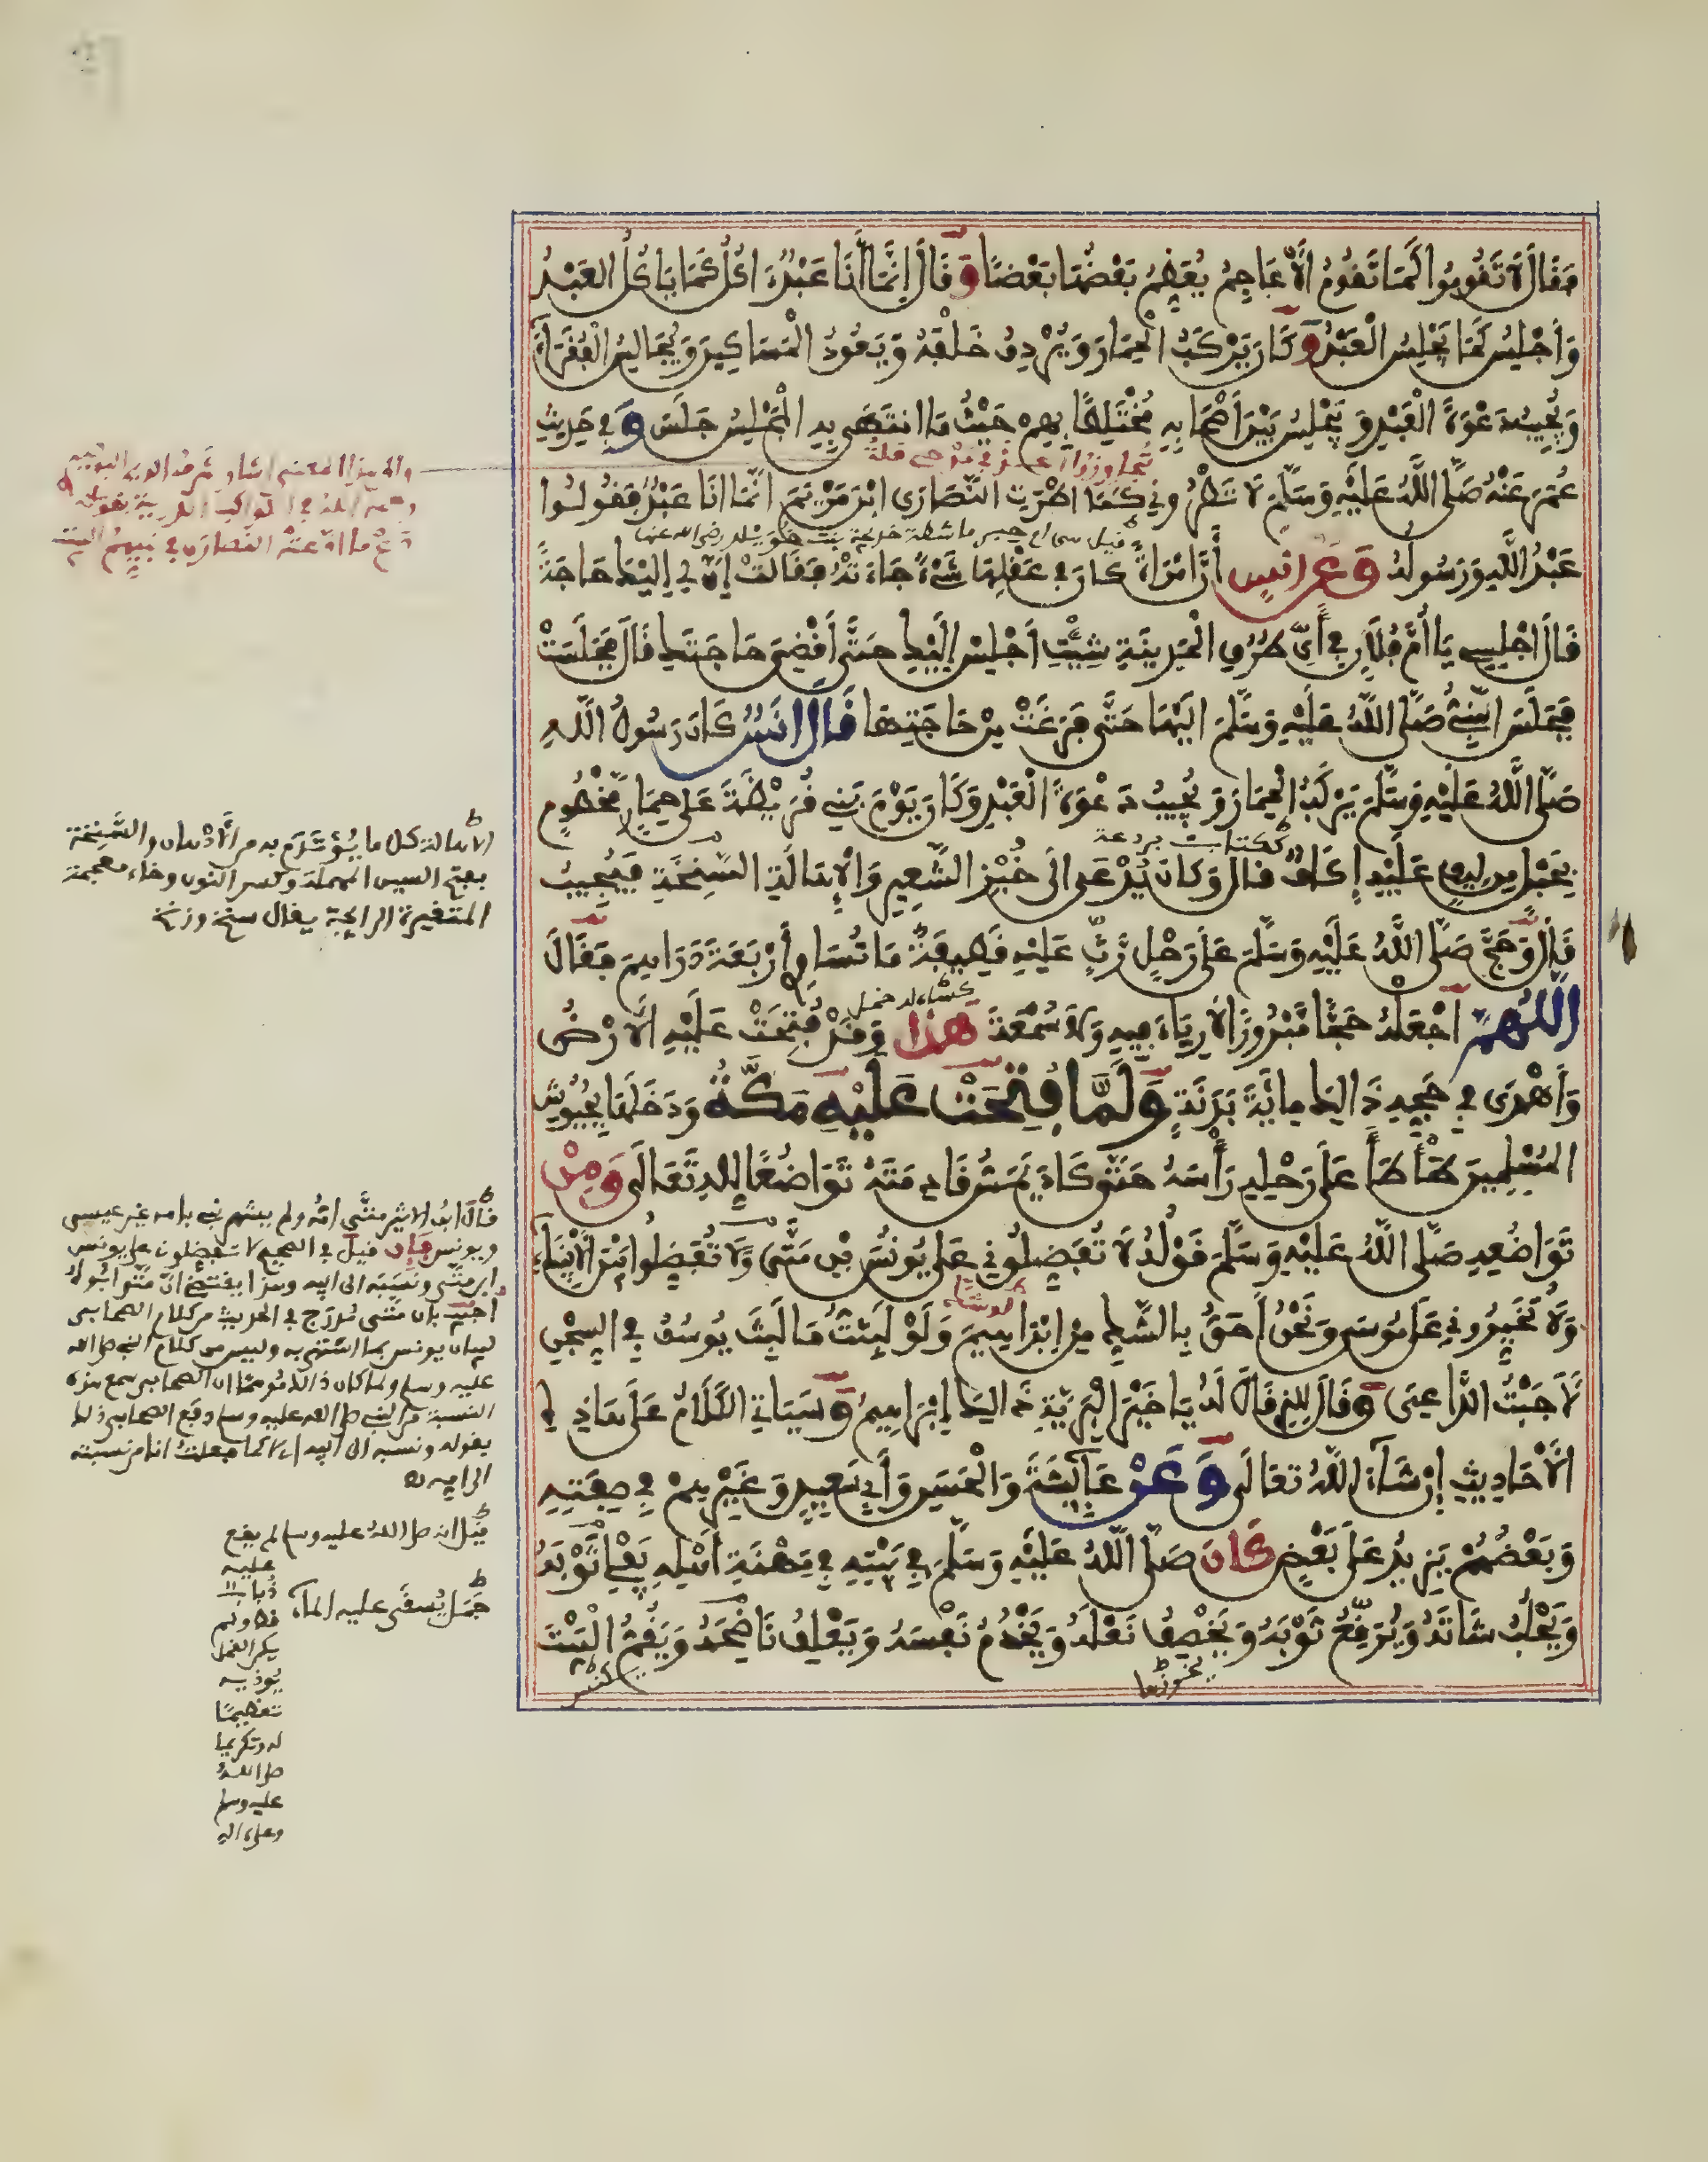 فَقَالَ لَا تَقُومُوا كَمَا تَقُومُ الْأَعَاجِمُ يُعَظِّمُ بَعْضُهَا بَعْضًا وَقَالَ إِنَّمَا أَنَا عَبْدٌ آكُلُ كَمَا يَأْكُلُ الْعَبْدُ
وَأَجْلِسُ كَمَا يَجْلِسُ الْعَبْدُ وَكَانَ يَرْكَبُ الْحِمَارَ وَيُرْدِفُ خَلْفَهُ وَيَعُودُ الْمَسَاكِينَ وَيُجَالِسُ الْفُقَرَاءَ
وَيُجِيبُ دَعْوَةَ الْعَبْدِ وَيَجْلِسُ بَيْنَ أَصْحَابِهِ مُخْتَلِطًا بِهِمْ حَيْثُ مَا انتَهَى بِهِ الْمَجْلِسُ جَلَسَ وَفِي حَدِيثِ
عُمَرَ عَنْهُ صَلَّى اللَّهُ عَلَيْهِ وَسَلَّمَ لَا تُطْرُونِي كَمَا أَطْرَتِ النَّصَارَى ابْنَ مَرْيَمَ إِنَّمَا أَنَا عَبْدٌ فَقُولُوا
عَبْدُ اللَّهِ وَرَسُولُهُ وَعَن أنسٍ أَنَّ امْرَأَةً كَانَ فِي عَقْلِهَا شَيْءٌ جَاءَتْهُ فَقَالَتْ إِنَّ لِي إِلَيْكَ حَاجَةً
قَالَ اجْلِسِي يَا أُمَّ فُلَانٍ فِي أَيِّ طُرُقِ الْمَدِينَةِ شِئْتِ أَجْلِسْ إِلَيْكِ حَتَّى أَقْضِيَ حَاجَتَكِ قَالَ فَجَلَسَتْ
فَجَلَسَ النَّبِيُّ صَلَّى اللَّهُ عَلَيْهِ وَسَلَّمَ إِلَيْهَا حَتَّى فَرَغَتْ مِنْ حَاجَتِهَا قَالَ أَنَسٌ كَانَ رَسُولُ اللَّهِ
صَلَّى اللَّهُ عَلَيْهِ وَسَلَّمَ يَرْكَبُ الْحِمَارَ وَيُجِيبُ دَعْوَةَ الْعَبْدِ وَكَانَ يَوْمَ بَنِي قُرَيْظَةَ عَلَى حِمَارٍ مَخْطُومٍ
بِحَبْلٍ مِن لِيفٍ عَلَيْهِ إِكَافٌ قَالَ وَكَانَ يُدْعَى إِلَى خُبْزِ الشَّعِيرِ وَالْإِهَالَةِ السَّنِخَةِ فَيُجِيبُ
قَالَ وَحَجَّ صَلَّى اللَّهُ عَلَيْهِ وَسَلَّمَ عَلَى رَحْلٍ رَثٍّ عَلَيْهِ قَطِيفَةٌ مَا تُسَاوِي أَرْبَعَةَ دَرَاهِمَ فَقَالَ
اللَّهُمَّ اجْعَلْهُ حَجًّا مَبْرُورًا لَا رِيَاءَ فِيهِ وَلَا سُمْعَةَ هَذَا وَقَدْ فُتِحَتْ عَلَيْهِ الْأَرْضُ
وَأَهْدَى فِي حَجِّهِ ذَالِكَ مِائَةَ بَدَنَةٍ وَلَمَّا فُتِحَتْ عَلَيْهِ مَكَّةُ وَدَخَلَهَا بِجُيُوشِ
الْمُسْلِمِينَ طَأْطَأَ عَلَى رَحْلِهِ رَأْسَهُ حَتَّى كَادَ يَمَسُّ قَادِمَتَهُ تَوَاضُعًا لِلَّهِ تَعَالَى وَمِنْ
تَوَاضُعِهِ صَلَّى اللَّهُ عَلَيْهِ وَسَلَّمَ قَوْلُهُ لَا تُفَضِّلُونِي عَلَى يُونُسَ بْنِ مَتَّى وَلَا تُفَضِّلُوا بَيْنَ الْأَنْبِيَاءِ
وَلَا تُخَيِّرُونِي عَلَى مُوسَى وَنَحْنُ أَحَقُّ بِالشَّكِّ مِنْ إِبْرَاهِيمَ وَلَوْ لَبِثْتُ مَا لَبِثَ يُوسُفُ فِي السِّجْنِ
لَأَجَبْتُ الدَّاعِيَ وَقَالَ لِلَّذِي قَالَ لَهُ يَا خَيْرَ الْبَرِيَّةِ ذَالِكَ إِبْرَاهِيمُ وَسَيَأْتِي الْكَلَامُ عَلَى هَاذِهِ
الْأَحَادِيثِ إِنْ شَاءَ اللَّهُ تَعَالَى وَعَنْ عَائِشَةَ وَالْحَسَنِ وَأَبِي سَعِيدٍ وَغَيْرِهِمْ فِي صِفَتِهِ
وَبَعْضُهُمْ يَزِيدُ عَلَى بَعْضٍ كَانَ صَلَّى اللَّهُ عَلَيْهِ وَسَلَّمَ فِي بَيْتِهِ فِي مِهْنَةِ أَهْلِهِ يَفْلِي ثَوْبَهُ
وَيَحْلُبُ شَاتَهُ وَيُرَقِّعُ ثَوْبَهُ وَيَخْصِفُ نَعْلَهُ وَيَخْدُمُ نَفْسَهُ وَيَعْلِفُ نَاضِحَهُ وَيَقُمُّ الْبَيْتَ
يخرزها
يكنس
تجاوزوا الحد في مدحي
قيل هي ام ماشطة خديجة بنت خويلد رضي الله عنها
ككتاب بردعة
كساء له خمل
دع ما ادعته النصارى في نبيهم
الإهالة كل ما يُؤتدم به من الأدهان والسَّنِخة
بفتح السين المهملة وكسر النون وخاء معجمة
المتغيرة الرائحة يقال سنخ وزنخ
قال ابن الاثير متَّى امُّه ولم يشهر نبي بامه غير عيسى
ويونس فإن قيل في الصحيح لا تفضلون على يونس
ابن متَّى ونسبه الى ابيه وهذا يقتضي انَّ متَّى ابوه
أجيب بان متى مدرج في الحديث من كلام الصحابي
لبيان يونس بما اشتهر به وليس من كلام النبي صلى الله
عليه وسلم ولما كان ذالك موهما ان الصحابي سمع هذه
النسبة من النبي صلى الله عليه وسلم دفع الصحابي ذلك
بقوله ونسبه الى ابيه اي لا كما فعلت انا من نسبته
الى امه
قيل انه صلى الله عليه وسلم لم يقع
عليه
ذباب
قط ولم
يكن القمل
يوذيه
تعظيما
له وتكريما
صلى الله
عليه وسلم
وعلى اله
جَمَل يُسقَى عليه الماء